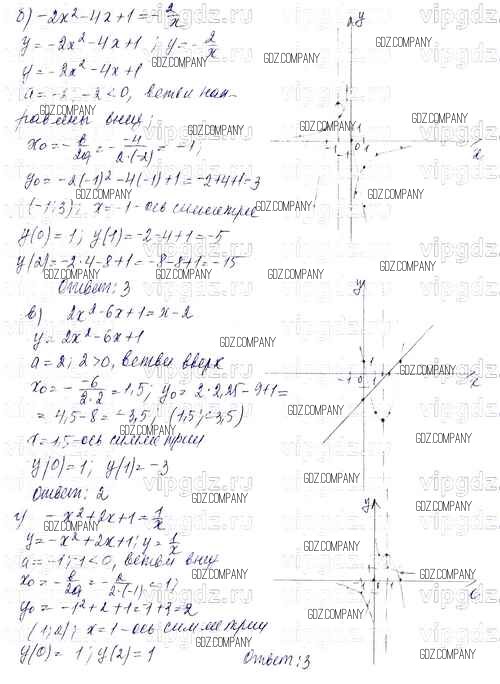 б) -2x²-4x+1=-2/x
y=-2x²-4x+1; y=-2/x
y=-2x²-4x+1
a=-2; -2<0, ветви нап-
равлены вниз;
x₀=-b/2a=--4/2·(-2)=-1;
y₀=-2(-1)²-4(-1)+1=-2+4+1=3
(-1;3); x=-1-ось симметрии
y(0)=1; y(1)=-2-4+1=-5
y(2)=-2·4-8+1=-8-8+1=-15
Ответ: 3
в) 2x²-6x+1=x-2
y=2x²-6x+1
a=2; 2>0, ветви вверх
x₀=--6/2·2=1,5; y₀=2·2,25-9+1=
=4,5-8=-3,5; (1,5;-3,5)
x=1,5-ось симметрии
y(0)=1; y(1)=-3
Ответ: 2
г) -x²+2x+1=1/x
y=-x²+2x+1; y=1/x
a=-1; -1<0, ветви вниз
x₀=-b/2a=-2/2·(-1)=1;
y₀=-1²+2+1=-1+3=2
(1;2); x=1-ось симметрии
y(0)=1; y(2)=1
Ответ: 3
vipgdz.ru
GDZ.COMPANY